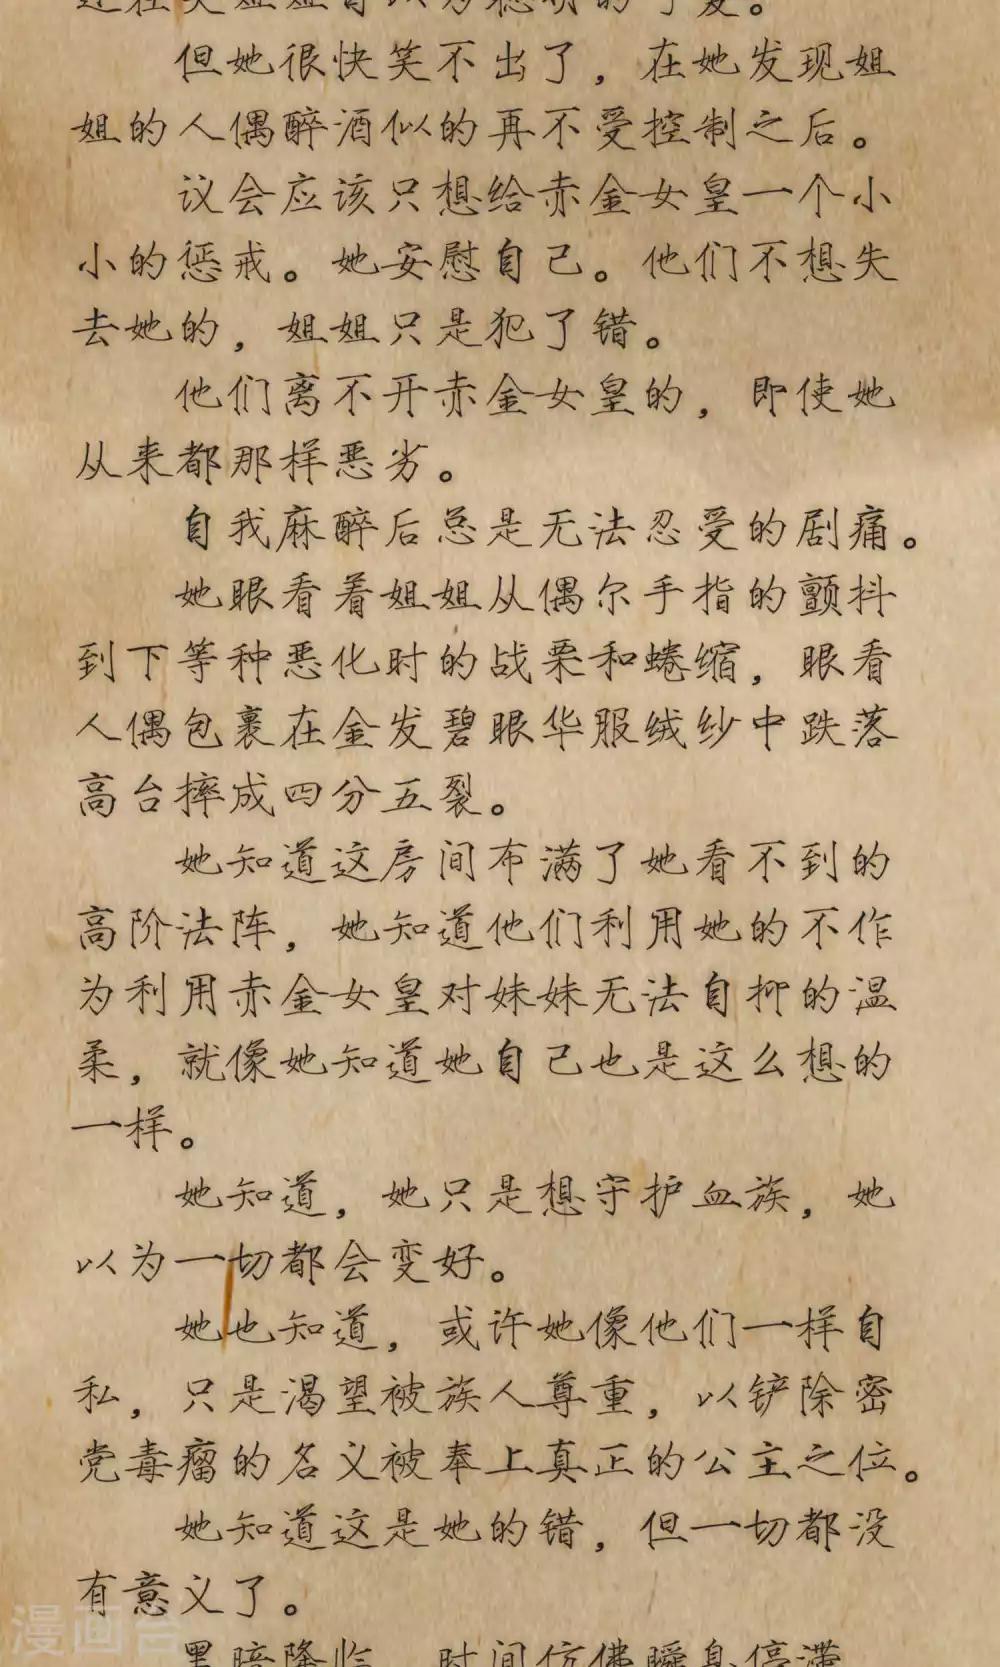 但她很快笑不出了，在她发现姐
姐的人偶醉酒似的再不受控制之后。
议会应该只想给赤金女皇一个小
小的惩戒。她安慰自己。他们不想失
去她的，姐姐只是犯了错。
他们离不开赤金女皇的，即使她
从来都那样恶劣。
自我麻醉后总是无法忍受的剧痛。
她眼看着姐姐从偶尔手指的颤抖
到下等种恶化时的战栗和蜷缩，眼看
人偶包裹在金发碧眼华服绒纱中跌落
高台摔成四分五裂。
她知道这房间布满了她看不到的
高阶法阵，她知道他们利用她的不作
为利用赤金女皇对妹妹无法自抑的温
柔，就像她知道她自己也是这么想的
一样。
她知道，她只是想守护血族，她
以为一切都会变好。
她也知道，或许她像他们一样自
私，只是渴望被族人尊重，以铲除密
党毒瘤的名义被奉上真正的公主之位。
她知道这是她的错，但一切都没
有意义了。
黑暗降临，时间仿佛瞬息停滞
漫画台